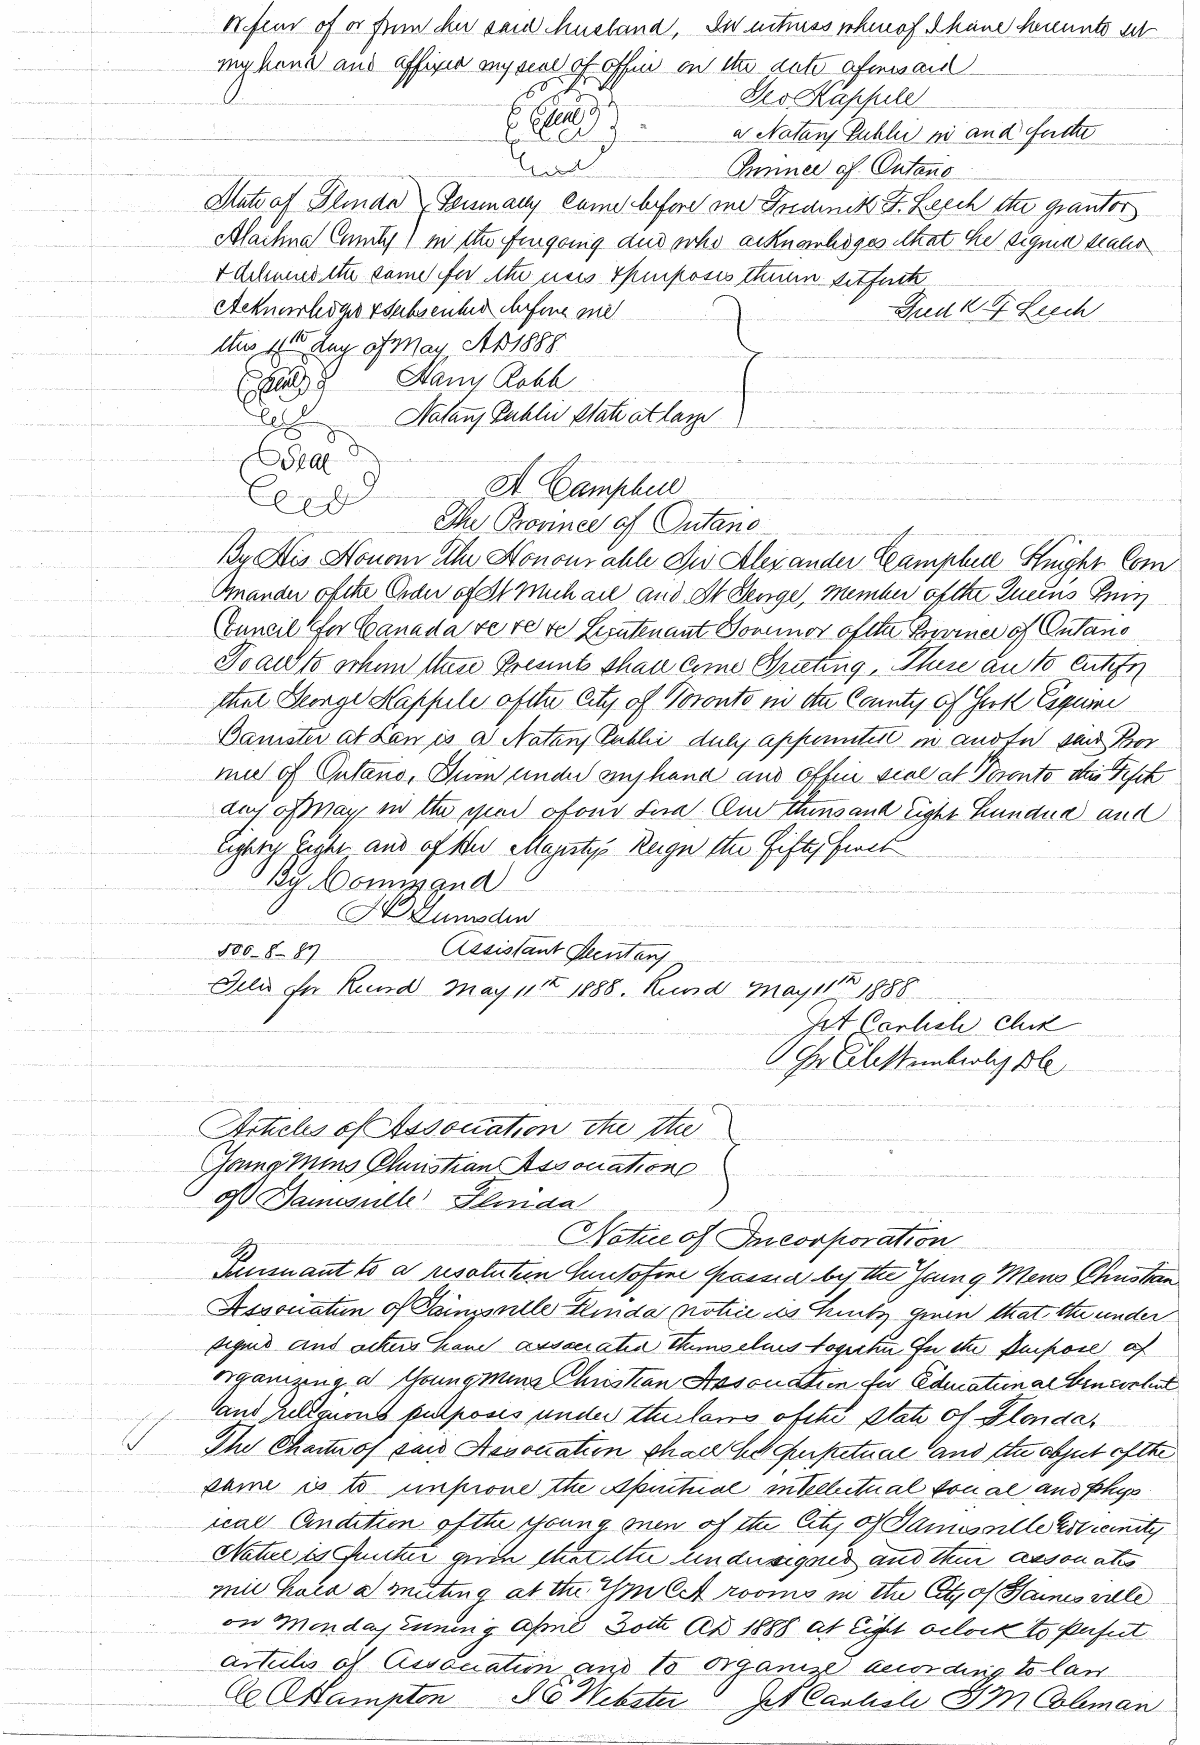 or fear of or from her said husband, In witness whereof I have hereunto set
my hand and affixed my seal of office on the date aforesaid
Geo Kappele
Seal
a Notary Public in and for the
Province of Ontario
State of Florida } Personally came before me Frederick F. Leech the grantor
Alachua County } in the foregoing deed who acknowledges that he signed sealed
& delivered the same for the uses & purposes therein set forth
Acknowledged & subscribed before me
Fred K F Leech
this 11th day of May AD 1888
Seal Harry Robb
Notary Public State at large
Seal
A Campbell
The Province of Ontario
By His Honour The Honourable Sir Alexander Campbell Knight Com
mander of the Order of St Michael and St George, Member of the Queens Privy
Council for Canada &c &c &c Lieutenant Governor of the Province of Ontario
To all to whom these Presents shall come Greeting. These are to certify
that George Kappele of the City of Toronto in the County of York Esquire
Barrister at Law is a Notary Public duly appointed in and for said Prov
ince of Ontario, Given under my hand and office seal at Toronto this Fifth
day of May in the year of our Lord One thousand Eight hundred and
Eighty Eight and of Her Majesty's Reign the fifty first
By Command
Lumsden
500-8-87 Assistant Secretary
Filed for Record May 11th 1888. Record May 11th 1888
J A Carlisle Clerk
DC
Articles of Association the the
Young Mens Christian Association
of Gainesville Florida
Notice of Incorporation
Pursuant to a resolution heretofore passed by the Young Mens Christian
Association of Gainesville Florida notice is hereby given that the under
signed and others have associated themselves together for the purpose of
organizing a Young Mens Christian Association for Educational benevolent
and religious purposes under the laws of the State of Florida.
The Charter of said Association shall be perpetual and the object of the
same is to improve the spiritual intellectual social and phys
ical condition of the young men of the City of Gainesville & vicinity
Notice is further given that the undersigned and their associates
will hold a meeting at the YMCA rooms in the City of Gainesville
on Monday evening April 30th AD 1888 at Eight oclock to perfect
articles of Association and to organize according to law
C A Hampton J E Webster J A Carlisle T M Coleman